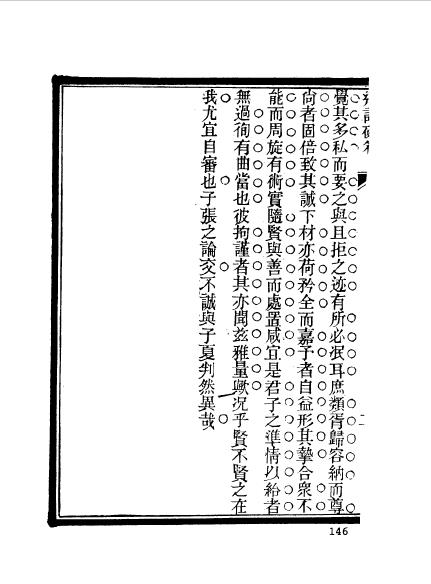 覺其多私而要之與且拒之迹有所必泯耳庶類胥歸容納而尊
尙者固倍致其誠下材亦荷矜全而嘉予者自益形其摯合衆不
能而周旋有術實隨賢與善而處置咸宜是君子之準情以給者
無過徇有曲當也彼拘謹者其亦聞茲雅量歟况乎賢不賢之在
我尤宜自審也子張之論交不誠與子夏判然異哉
二
146